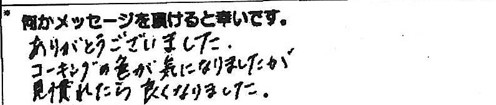 * 何かメッセージを頂けると幸いです。
ありがとうございました.
コーキングの色が気になりましたが
見慣れたら良くなりました。